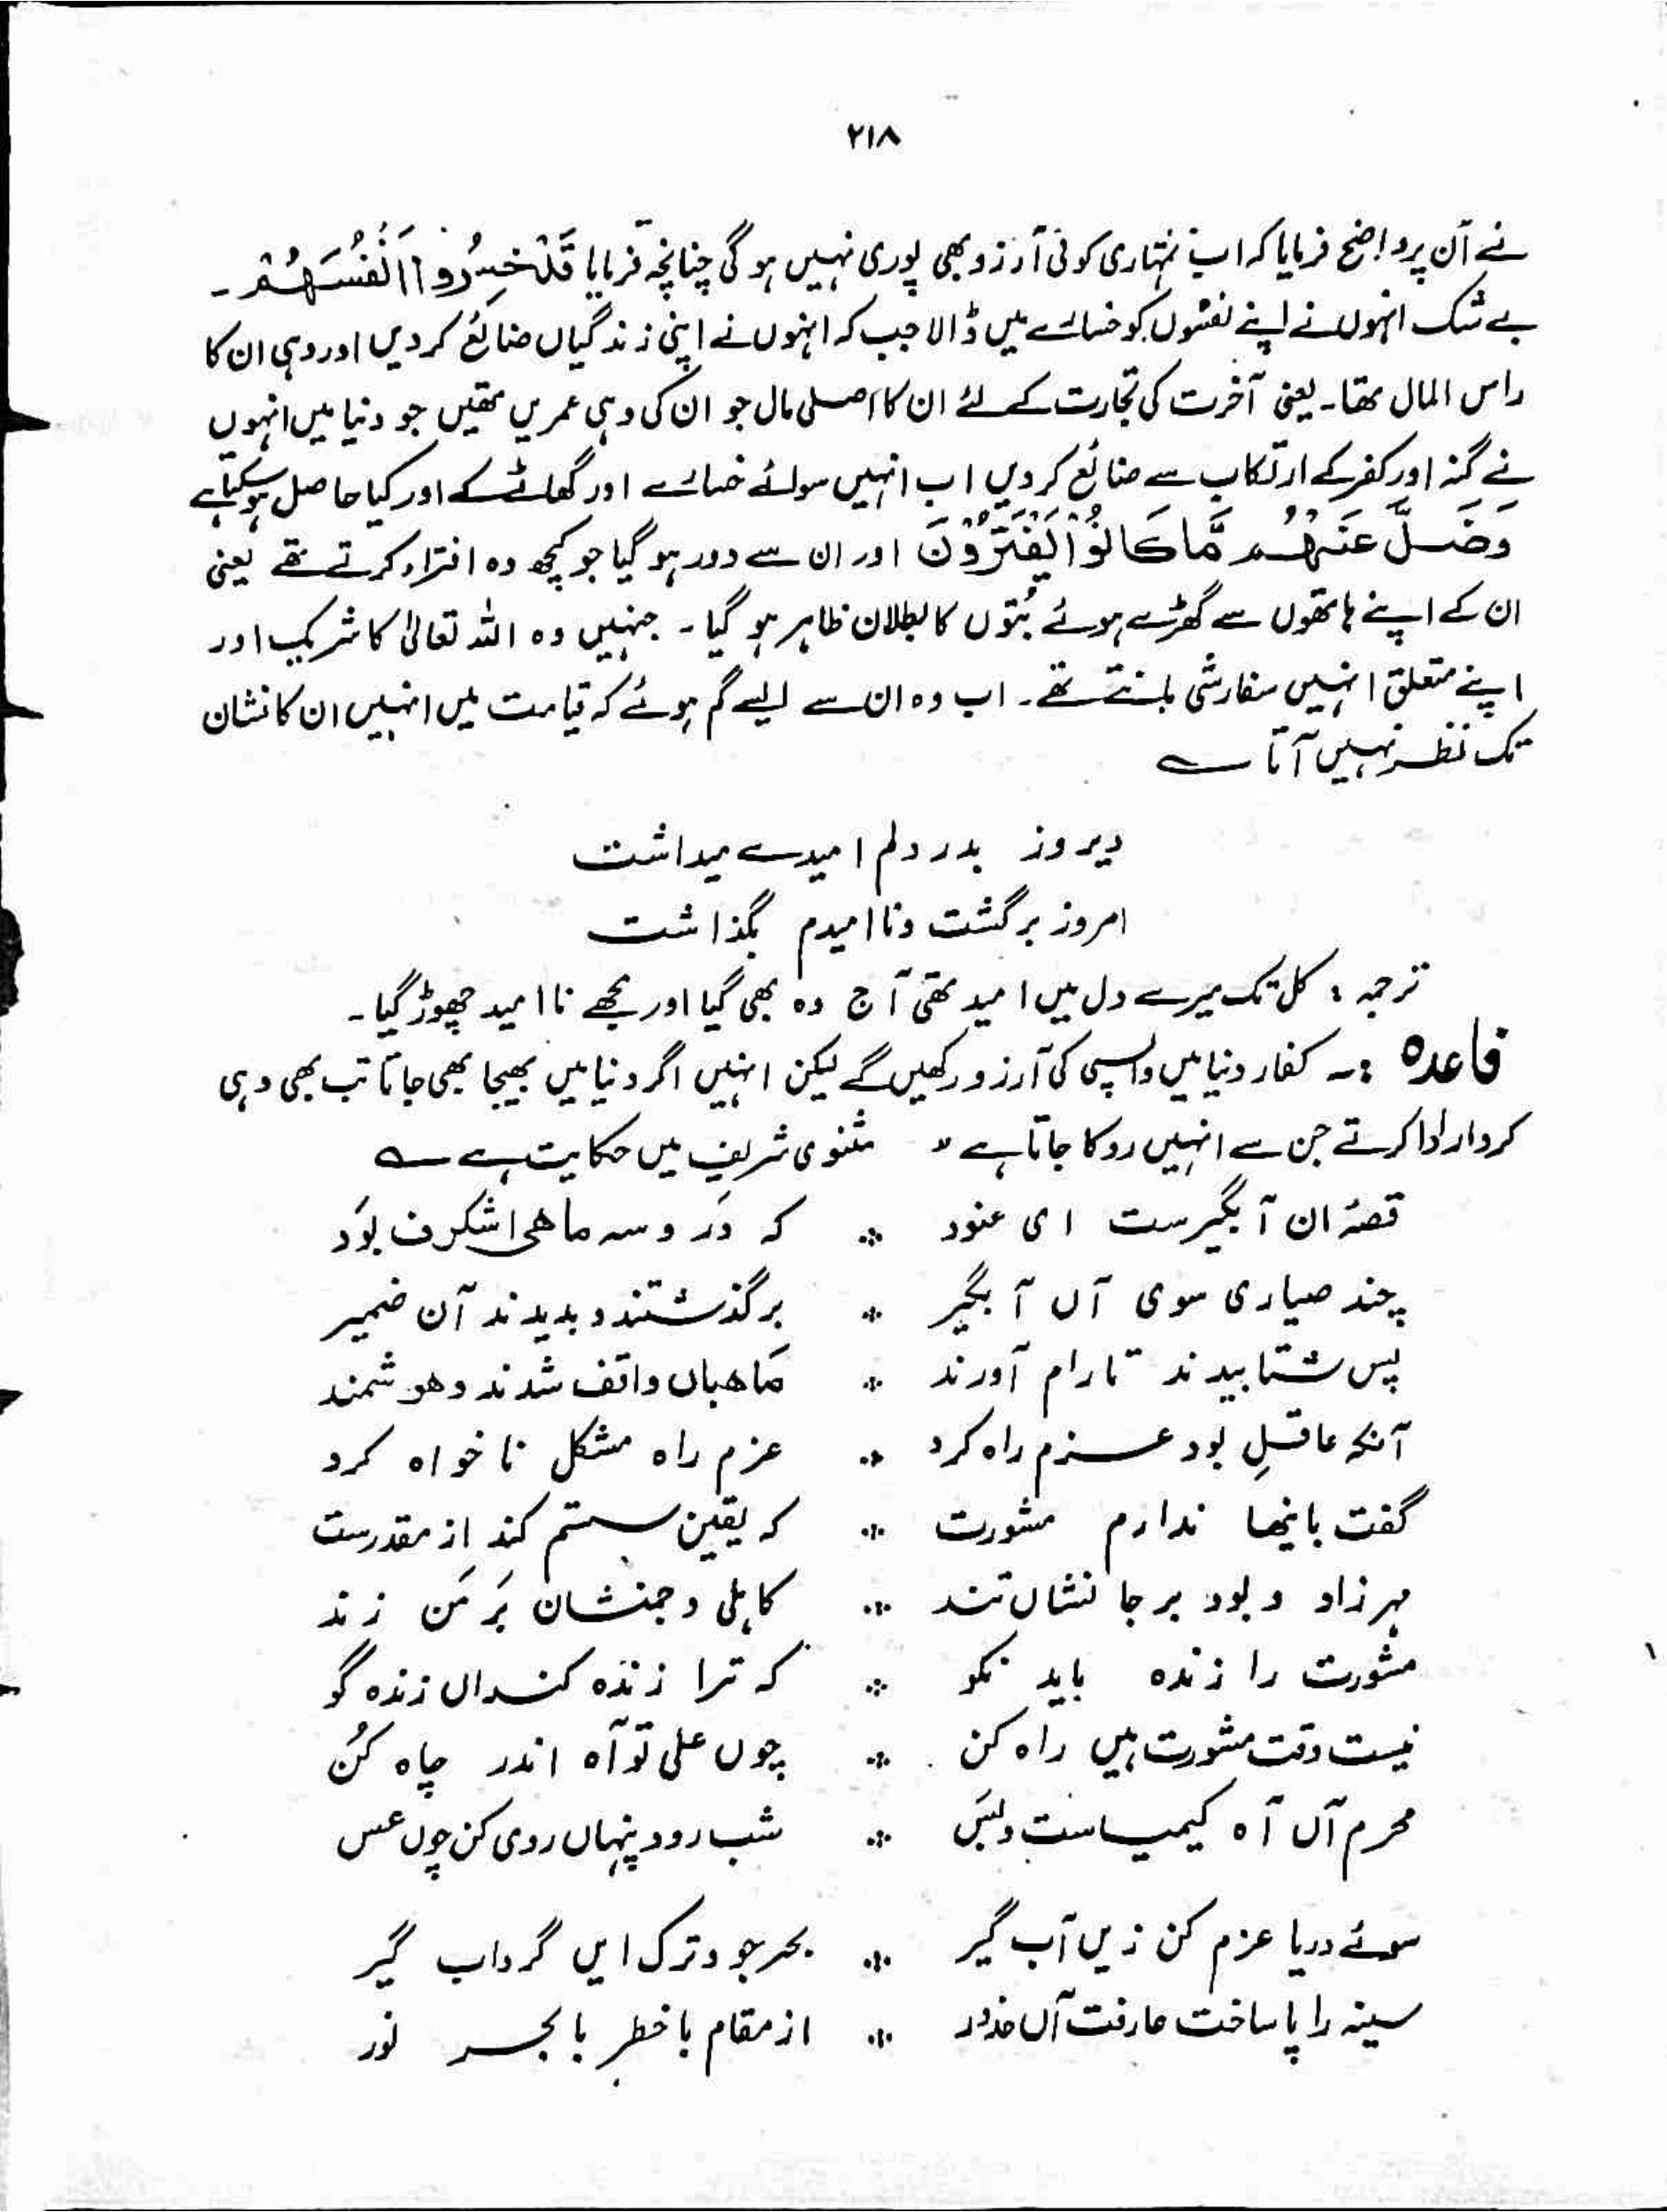 ۲۱۸
نے ان پر واضح فرمایا کہ اب تمہاری کوئی آرزو بھی پوری نہیں ہو گی چنانچہ فرمایا قَدْ خَسِرُوْا اَنْفُسَهُمْ ۔
بے شک انہوں نے اپنے نفسوں کو خسارے میں ڈالا جب کہ انہوں نے اپنی زندگیاں ضائع کر دیں اور وہی ان کا
راس المال تھا۔ یعنی آخرت کی تجارت کے لئے ان کا اصلی مال جو ان کی وہی عمریں تھیں جو دنیا میں انہوں
نے گنہ اور کفر کے ارتکاب سے ضائع کر دیں اب انہیں سوائے خسارے اور گھاٹے کے اور کیا حاصل ہو سکتا ہے
وَضَلَّ عَنْهُمْ مَّا كَانُوْا يَفْتَرُوْنَ اور ان سے دور ہو گیا جو کچھ وہ افتراء کرتے تھے یعنی
ان کے اپنے ہاتھوں سے گھڑے ہوئے بُتوں کا بطلان ظاہر ہو گیا۔ جنہیں وہ اللہ تعالیٰ کا شریک اور
اپنے متعلق انہیں سفارشی مانتے تھے۔ اب وہ ان سے ایسے گم ہوئے کہ قیامت میں انہیں ان کا نشان
تک نظر نہیں آتا ؎
دیروز بدر دلم امیدے میداشت
امروز برگشت و ناامیدم بگذاشت
ترجمہ : کل تک میرے دل میں امید تھی آج وہ بھی گیا اور مجھے ناامید چھوڑ گیا۔
قاعدہ :۔ کفار دنیا میں واپسی کی آرزو رکھیں گے لیکن انہیں اگر دنیا میں بھیجا بھی جاتا تب بھی وہی
کردار ادا کرتے جن سے انہیں روکا جاتا ہے " مثنوی شریف میں حکایت ہے ؎
قصۂ ان آبگیرست ای عنود ※ کہ دَر و سہ ماهی اشگرف بوَد
چند صیادی سوی آں آبگیر ※ برگذشتند و بدیدند آن ضمیر
پس شتابیدند تا رام آورند ※ ماهیاں واقف شدند و هوشمند
آنکہ عاقلِ بود عزم راہ کرد ※ عزم راہ مشکل ناخواہ کرد
گفت بانیها ندارم مشورت ※ کہ یقین سستم کند از مقدرست
مہر زاد و بود بر جا نشاں تند ※ کاہلی و جہنشان بَر مَن زند
مشورت را زندہ باید نکو ※ کہ ترا زندہ کند اں زندہ گو
نیست وقت مشورت ہیں راہ کن ※ چوں علی تو آہ اندر چاہ کُن
محرم آں آہ کیمیاست وبس ※ شب رو و پنہاں روی کن چوں عس
سوئے دریا عزم کن زیں آب گیر ※ بحر جو و ترک ایں گرداب گیر
سینہ را پا ساخت مارفت آں حذور ※ از مقام با خطر با بحر نور